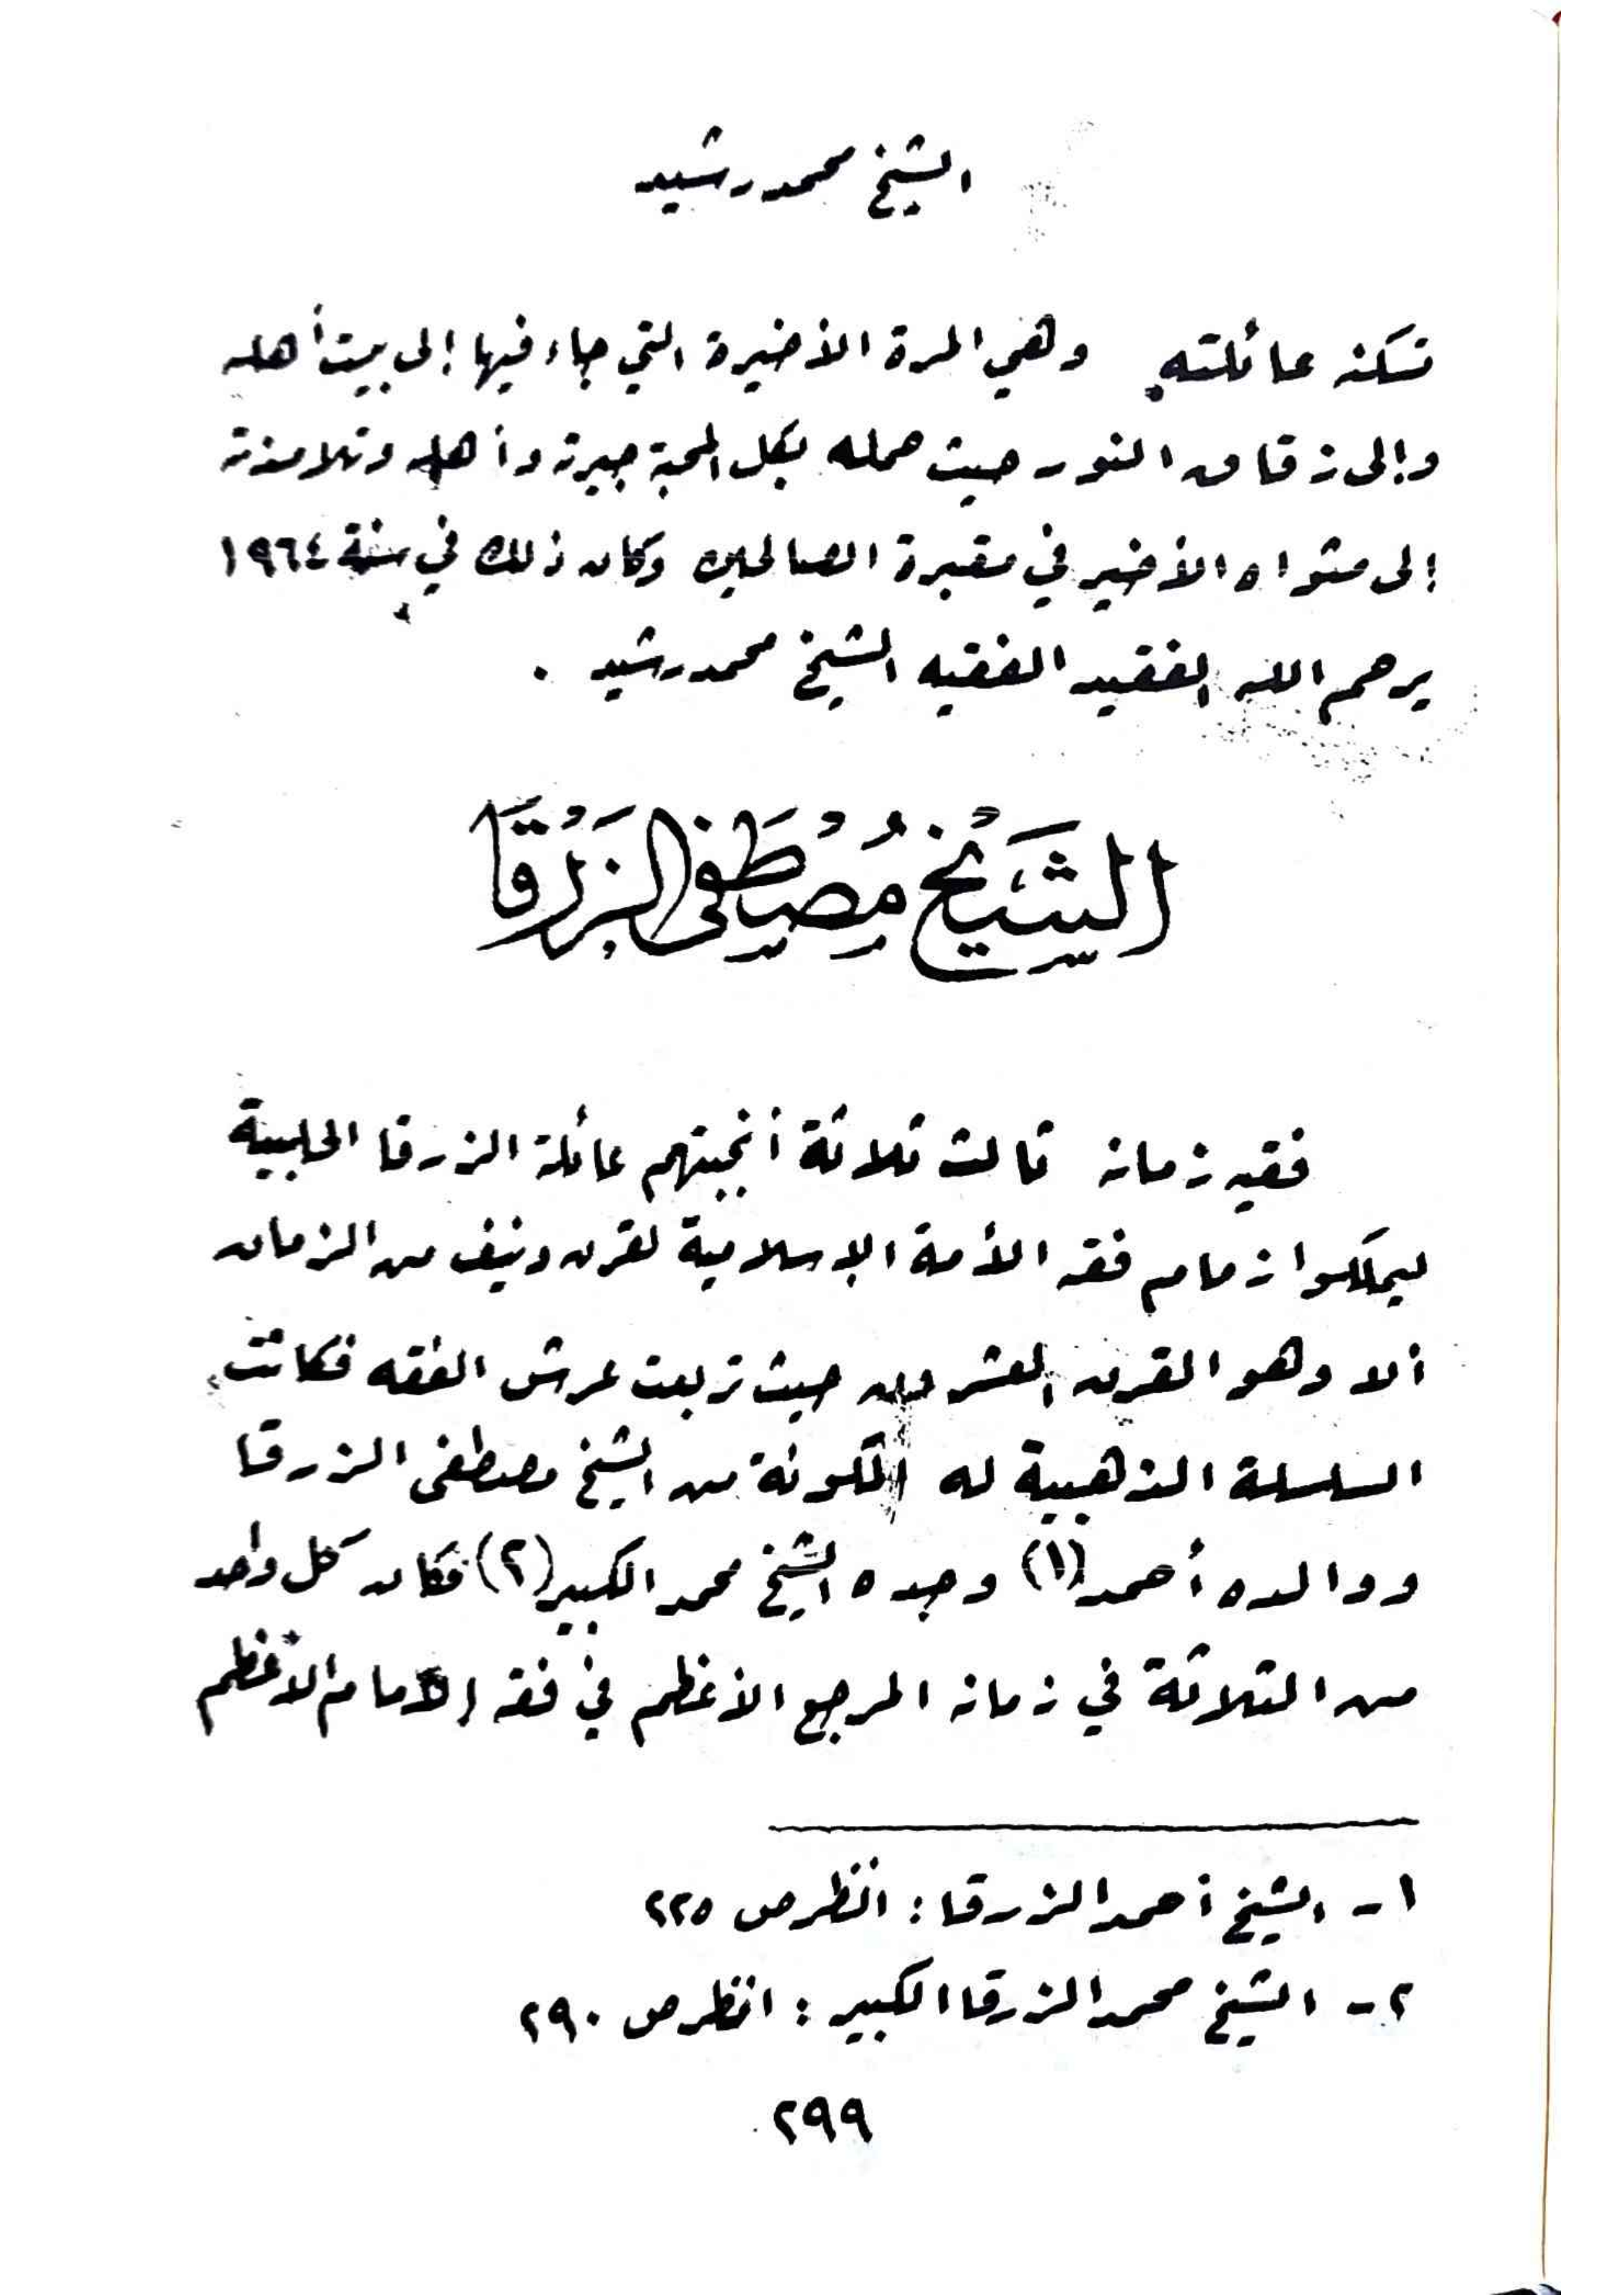 الشيخ محمد رشيد
تسكنه عائلته وهي المرة الأخيرة التي جاء فيها إلى بيت أهله
وإلى زقاق النور حيث حمله بكل المحبة جيرة وأهله وتلامذته
إلى مثواه الأخير في مقبرة الصالحين وكان ذلك في سنة ١٩٦٤
يرحم الله الفقيد الفقيه الشيخ محمد رشيد .
الشَّيْخ مُصْطَفى الزَّرْقَا
فقيه زمانه ثالث ثلاثة أنجبتهم عائلة الزرقا الحلبية
ليملكوا زمام فقه الأمة الإسلامية لقرن ونيف من الزمان
ألا وهو القرن العشرون حيث تربعت عرش الفقه فكانت
السلسلة الذهبية له المكونة من الشيخ مصطفى الزرقا
ووالده أحمد (١) وجده الشيخ محمد الكبير (٢) فكان كل واحد
من الثلاثة في زمانه المرجع الأعظم في فقه الإمام الأعظم
١ - الشيخ أحمد الزرقا : انظر ص ٢٢٥
٢ - الشيخ محمد الزرقا الكبير : انظر ص ٢٩٠
٢٩٩